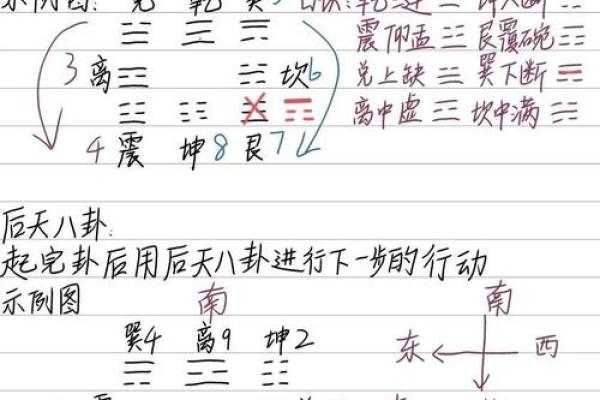 示例图：兑 乾 巽5 口诀：乾三连 坤六断
震仰盂 艮覆碗
3 离 坎6 兑上缺 巽下断
离中虚 坎中满
4 震 坤8 艮7
后天八卦：
起完卦后用后天八卦进行下一步的行动
示例图 南 南
巽4 离9 坤2
东 西